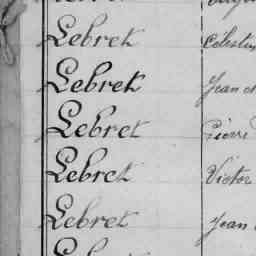 Lebret Célestin
Lebret Jean
Lebret Pierre
Lebret Victor
Lebret Jean